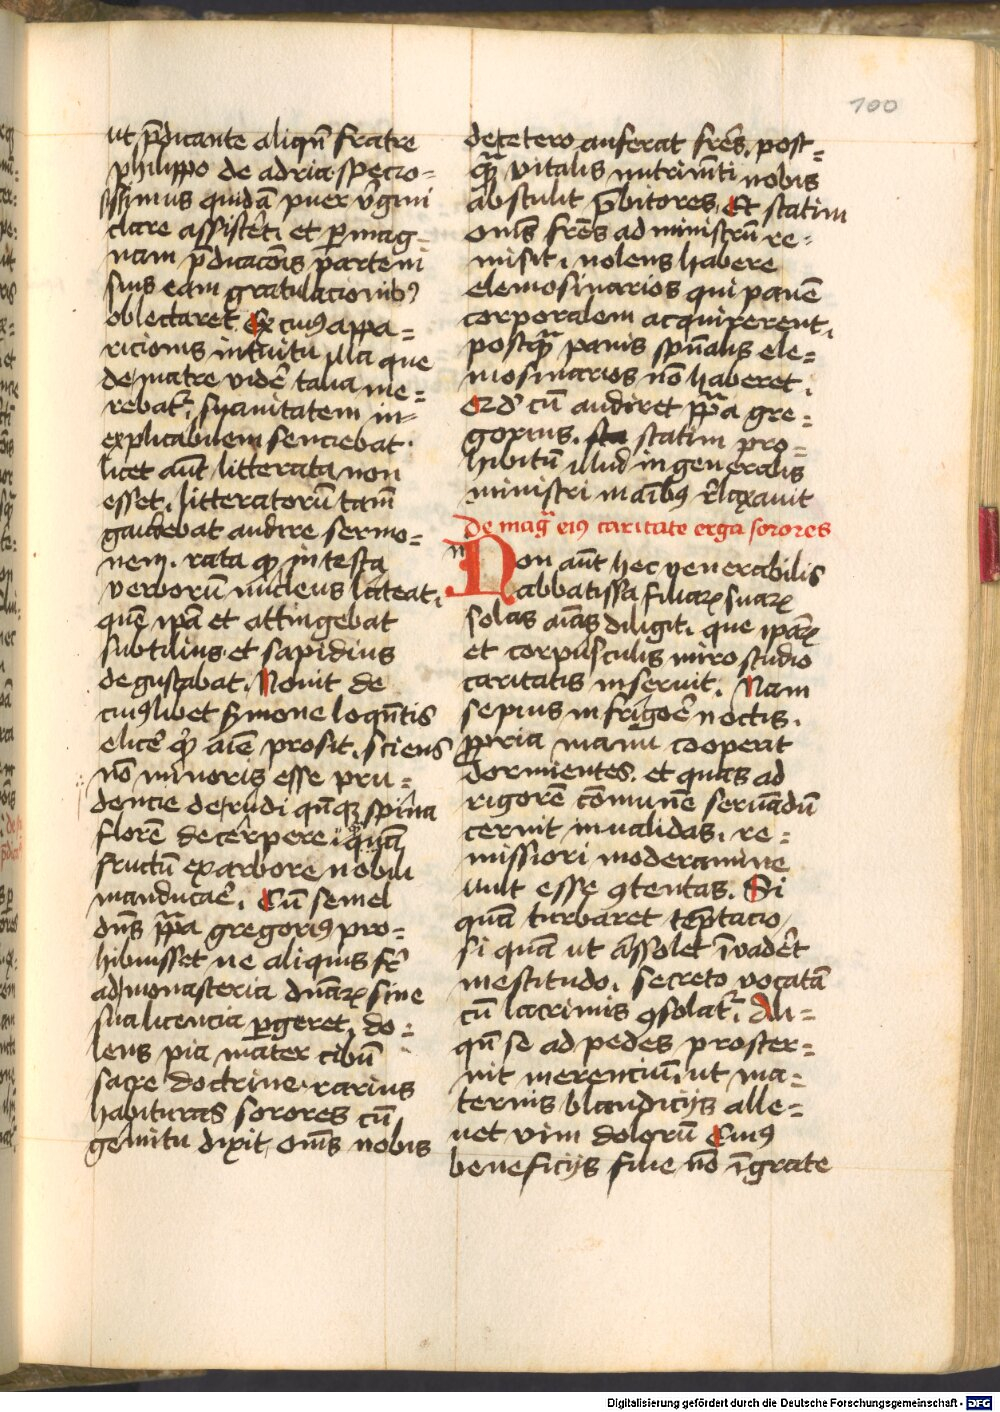 100
ut p̄dicante aliqn̄ fratre
philippo de adria specio=
ssimus quidā puer v̓gini
clare assister̄t. et p̱ mag=
nam p̄dicacōis partem
suis eam gratulacionibꝰ
oblectaret. Ex cuiꝰ appa=
ricionis intuitu illa que
de matre vider̄ talia me=
rebat᷑. suauitatem in=
explicabilem senciebat.
licet aūt litterata non
esset. litteratorū tam̄
gaudebat audire sermo=
nem. rata qꝫ in testa
verborū nucleus lateat.
quē ip̄a et attingebat
subtilius et sapidius
degustabat. Nouit de
cuiꝰlibet s̓mone loqn̄tis
elicer̄ qḋ aīe prosit. sciens
nō minoris esse pru=
dencie de rudi qn̄qꝫ spina
florē decerpere quam
fructū ex arbore nobili
manducar̄. Cū semel
dn̄s pp̄a gregoriꝰ pro=
hibuisset ne aliquis fr̄
ad monasteria dn̄arꝝ sine
sua licencia p̱geret. do=
lens pia mater cibū
sacre doctrine rarius
habituras sorores cū
gemitu dixit om̄s nobis
decetero auferat fr̄es. post=
qꝫ̄ vitalis nutrimēti nobis
abstulit p̄bitores. Et statim
om̄s fr̄es ad ministrū re=
misit. nolens habere
elemosinarios qui panē
corporalem acquirerent.
postqꝫ̄ panis sp̄ualis ele=
mosinarios nō haberet.
Qḋ cū audiret pp̄a gre=
gorius. statim pro=
hibitū illud in generalis
ministri maībꝰ rl̓axauit
De mag̓ eiꝰ caritate erga sorores
Non aūt hec venerabilis
abbatissa filiarꝝ suarꝝ
solas aīas diligit. que ip̄arꝝ
et corpusculis miro studio
caritatis inseruit. Nam
sepius in frigor̄ noctis.
ꝓpria manu cooperit
dormientes. et quas ad
rigorē cōmunē seruādū
cernit inualidas. re=
missiori moderamine
uult esse ꝯtentas. Si
quā turbaret tēptacio
si quā ut assolet īvader̄t
mestitudo. secreto vocatā
cū lacrimis ꝯsolat᷑. Ali=
qn̄ se ad pedes proster=
nit merencium. ut ma=
ternis blandicijs alle=
uet vim dolorū Cuiꝰ
beneficijs filie nō īgrate
Digitalisierung gefördert durch die Deutsche Forschungsgemeinschaft - DFG